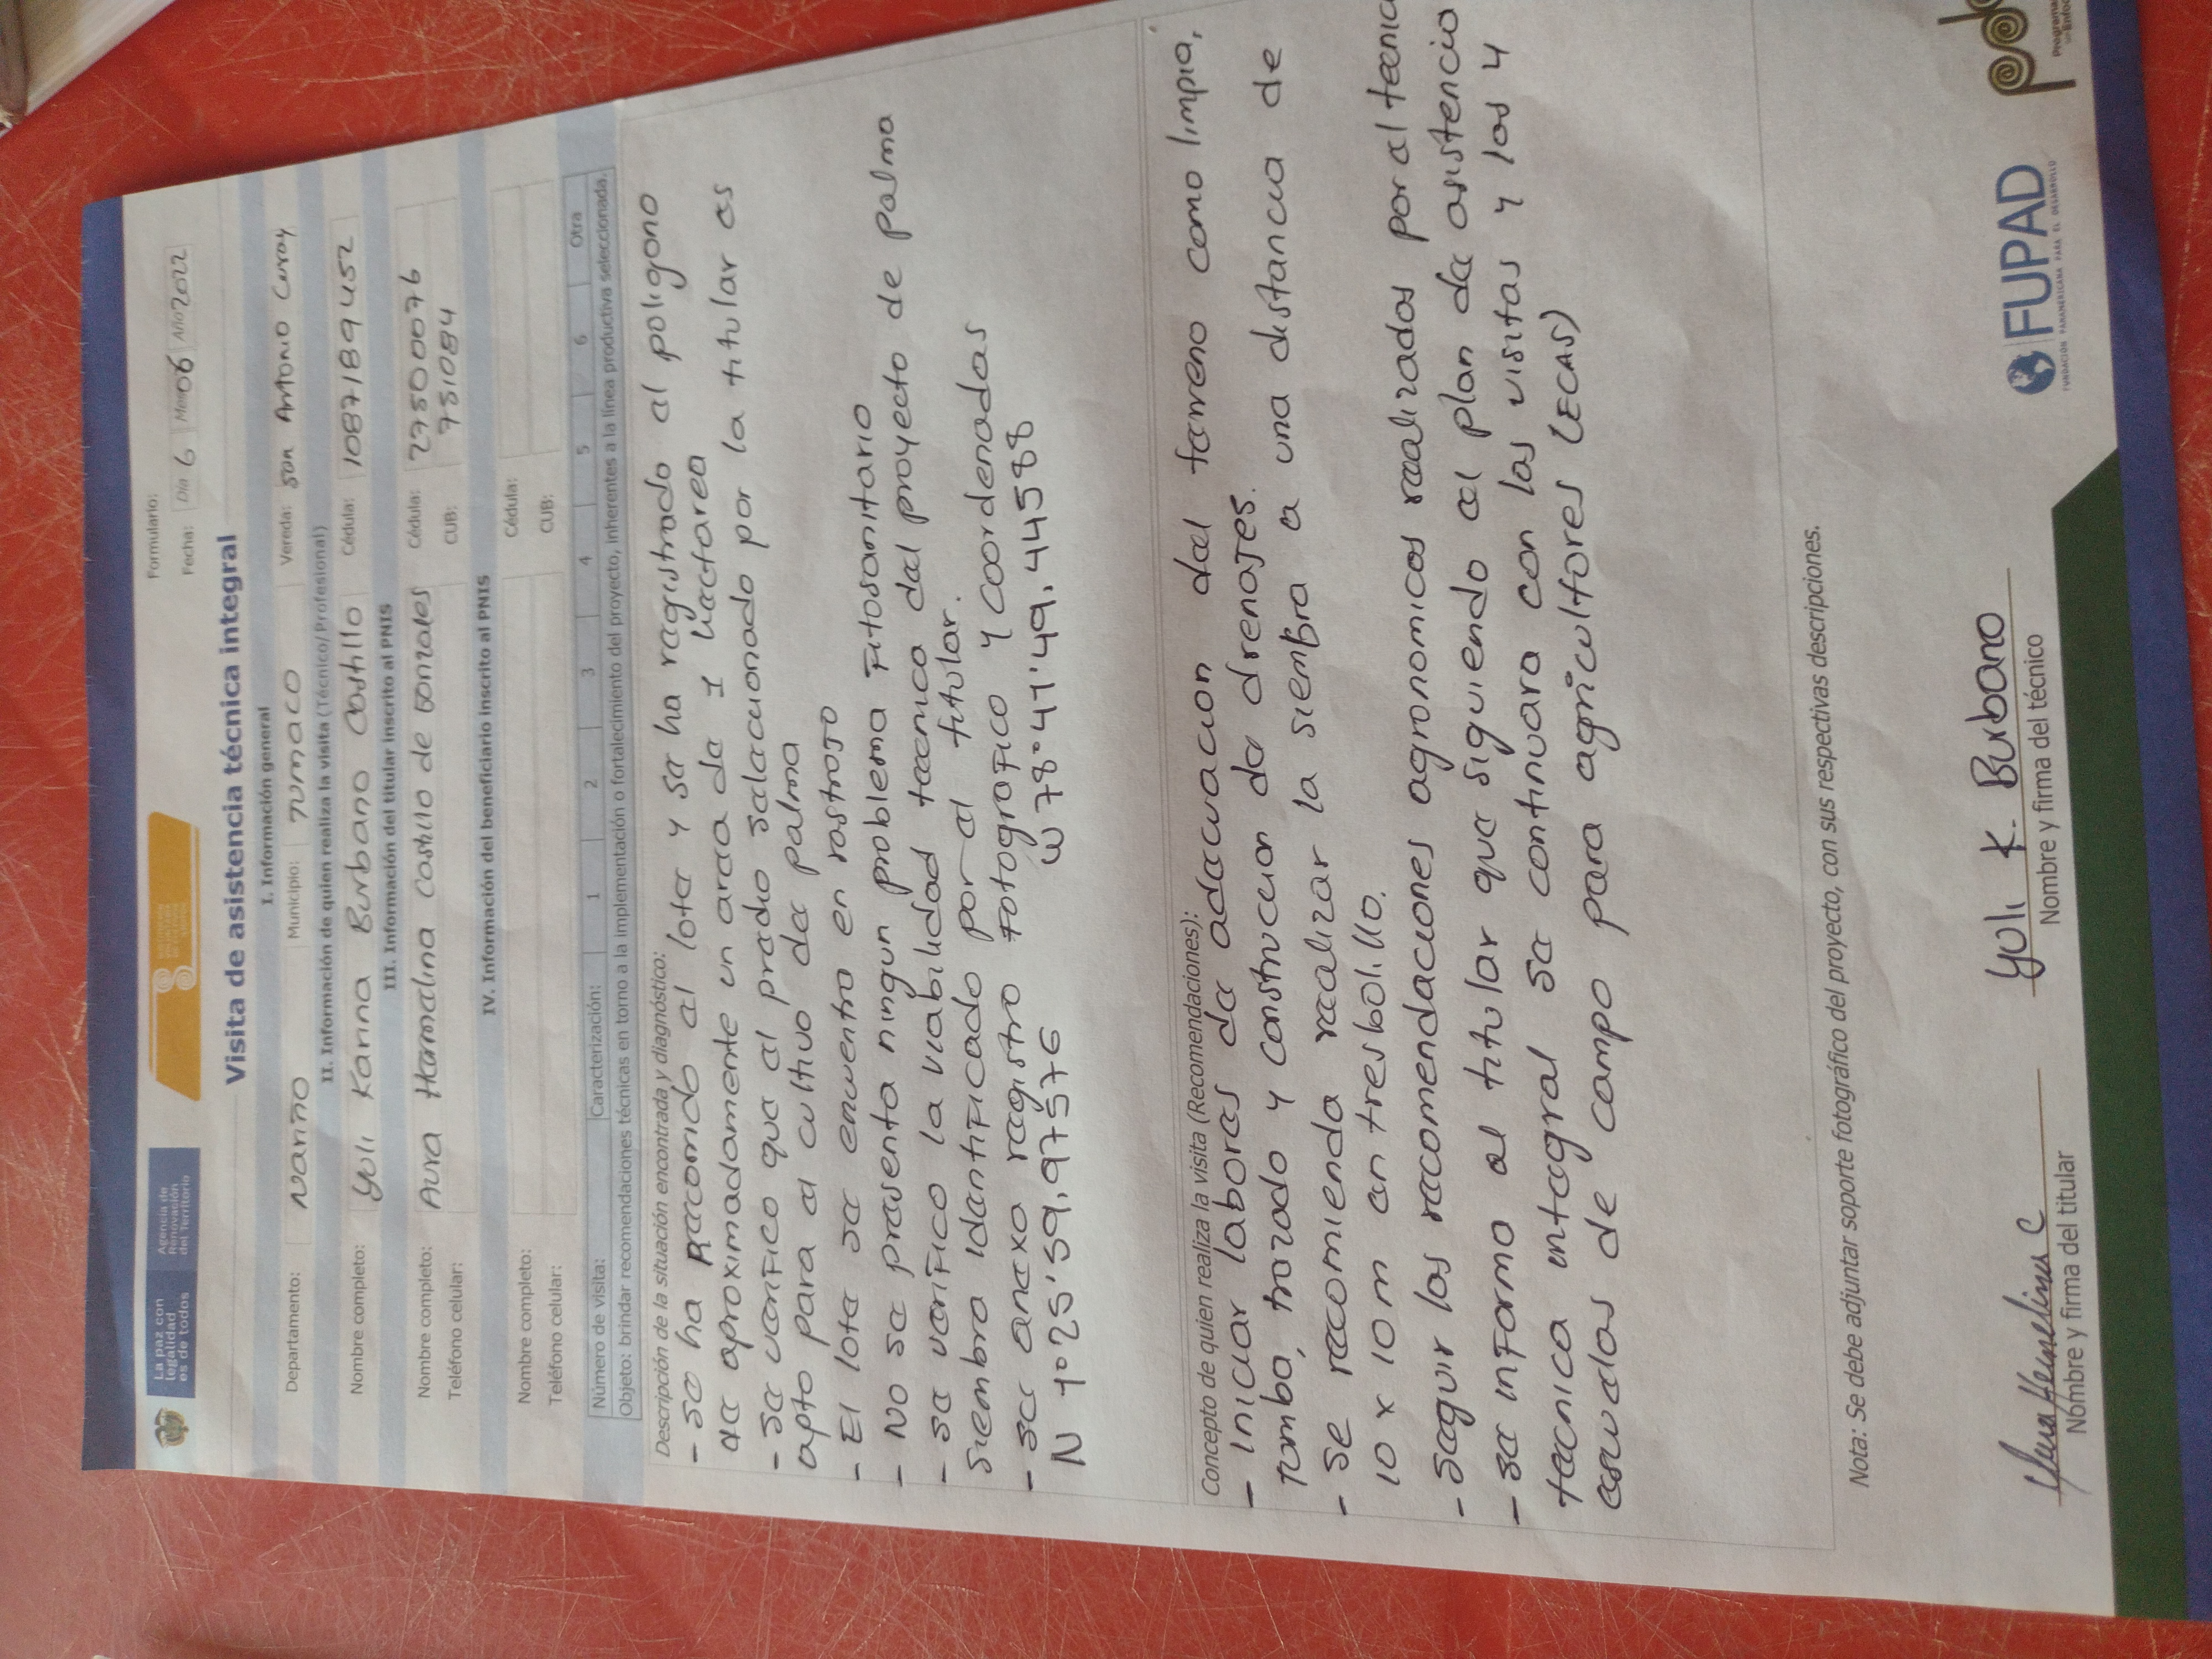 La paz con
legalidad
es de todos
Agencia de
Renovación
del Territorio
Formulario:
Fecha: Día 6 Mes 06 Año 2022
Visita de asistencia técnica integral
I. Información general
Departamento: Nariño Municipio: Tumaco Vereda: San Antonio Curay
II. Información de quien realiza la visita (Técnico/Profesional)
Nombre completo: Yuli Karina Burbano Castillo Cédula: 1087189452
III. Información del titular inscrito al PNIS
Nombre completo: Aura Hermelina Castillo de Gonzales Cédula: 27500076
Teléfono celular: CUB: 751084
IV. Información del beneficiario inscrito al PNIS
Nombre completo: Cédula:
Teléfono celular: CUB:
Número de visita: Caracterización: 1 2 3 4 5 6 Otra
Objeto: brindar recomendaciones técnicas en torno a la implementación o fortalecimiento del proyecto, inherentes a la línea productiva seleccionada.
Descripción de la situación encontrada y diagnóstico:
- se ha Recorrido el lote y se ha registrado el poligono
de aproximadamente un area de 1 Hectarea
- se verifico que el predio seleccionado por la titular es
apto para el cultivo de palma
- El lote se encuentra en rastrojo
- No se presenta ningun problema Fitosanitario
- se verifico la viabilidad tecnica del proyecto de palma
siembra identificado por el titular.
- se anexa registro Fotografico y coordenadas
N 1°25'59.97576 W 78°41'49.44588
Concepto de quien realiza la visita (Recomendaciones):
- iniciar labores de adecuacion del terreno como limpia,
tumba, trazado y construccion de drenajes.
- se recomienda realizar la siembra a una distancia de
10 x 10 m en tresbolillo.
- seguir las recomendaciones agronomicas realizados por el tecnic
- se informo al titular que siguiendo el plan de asistencia
tecnica integral se continuara con las visitas y los 4
escuelas de campo para agricultores (ECAS)
Nota: Se debe adjuntar soporte fotográfico del proyecto, con sus respectivas descripciones.
Aura Hermelina C
Nombre y firma del titular
Yuli K. Burbano
Nombre y firma del técnico
FUPAD
FUNDACIÓN PANAMERICANA PARA EL DESARROLLO